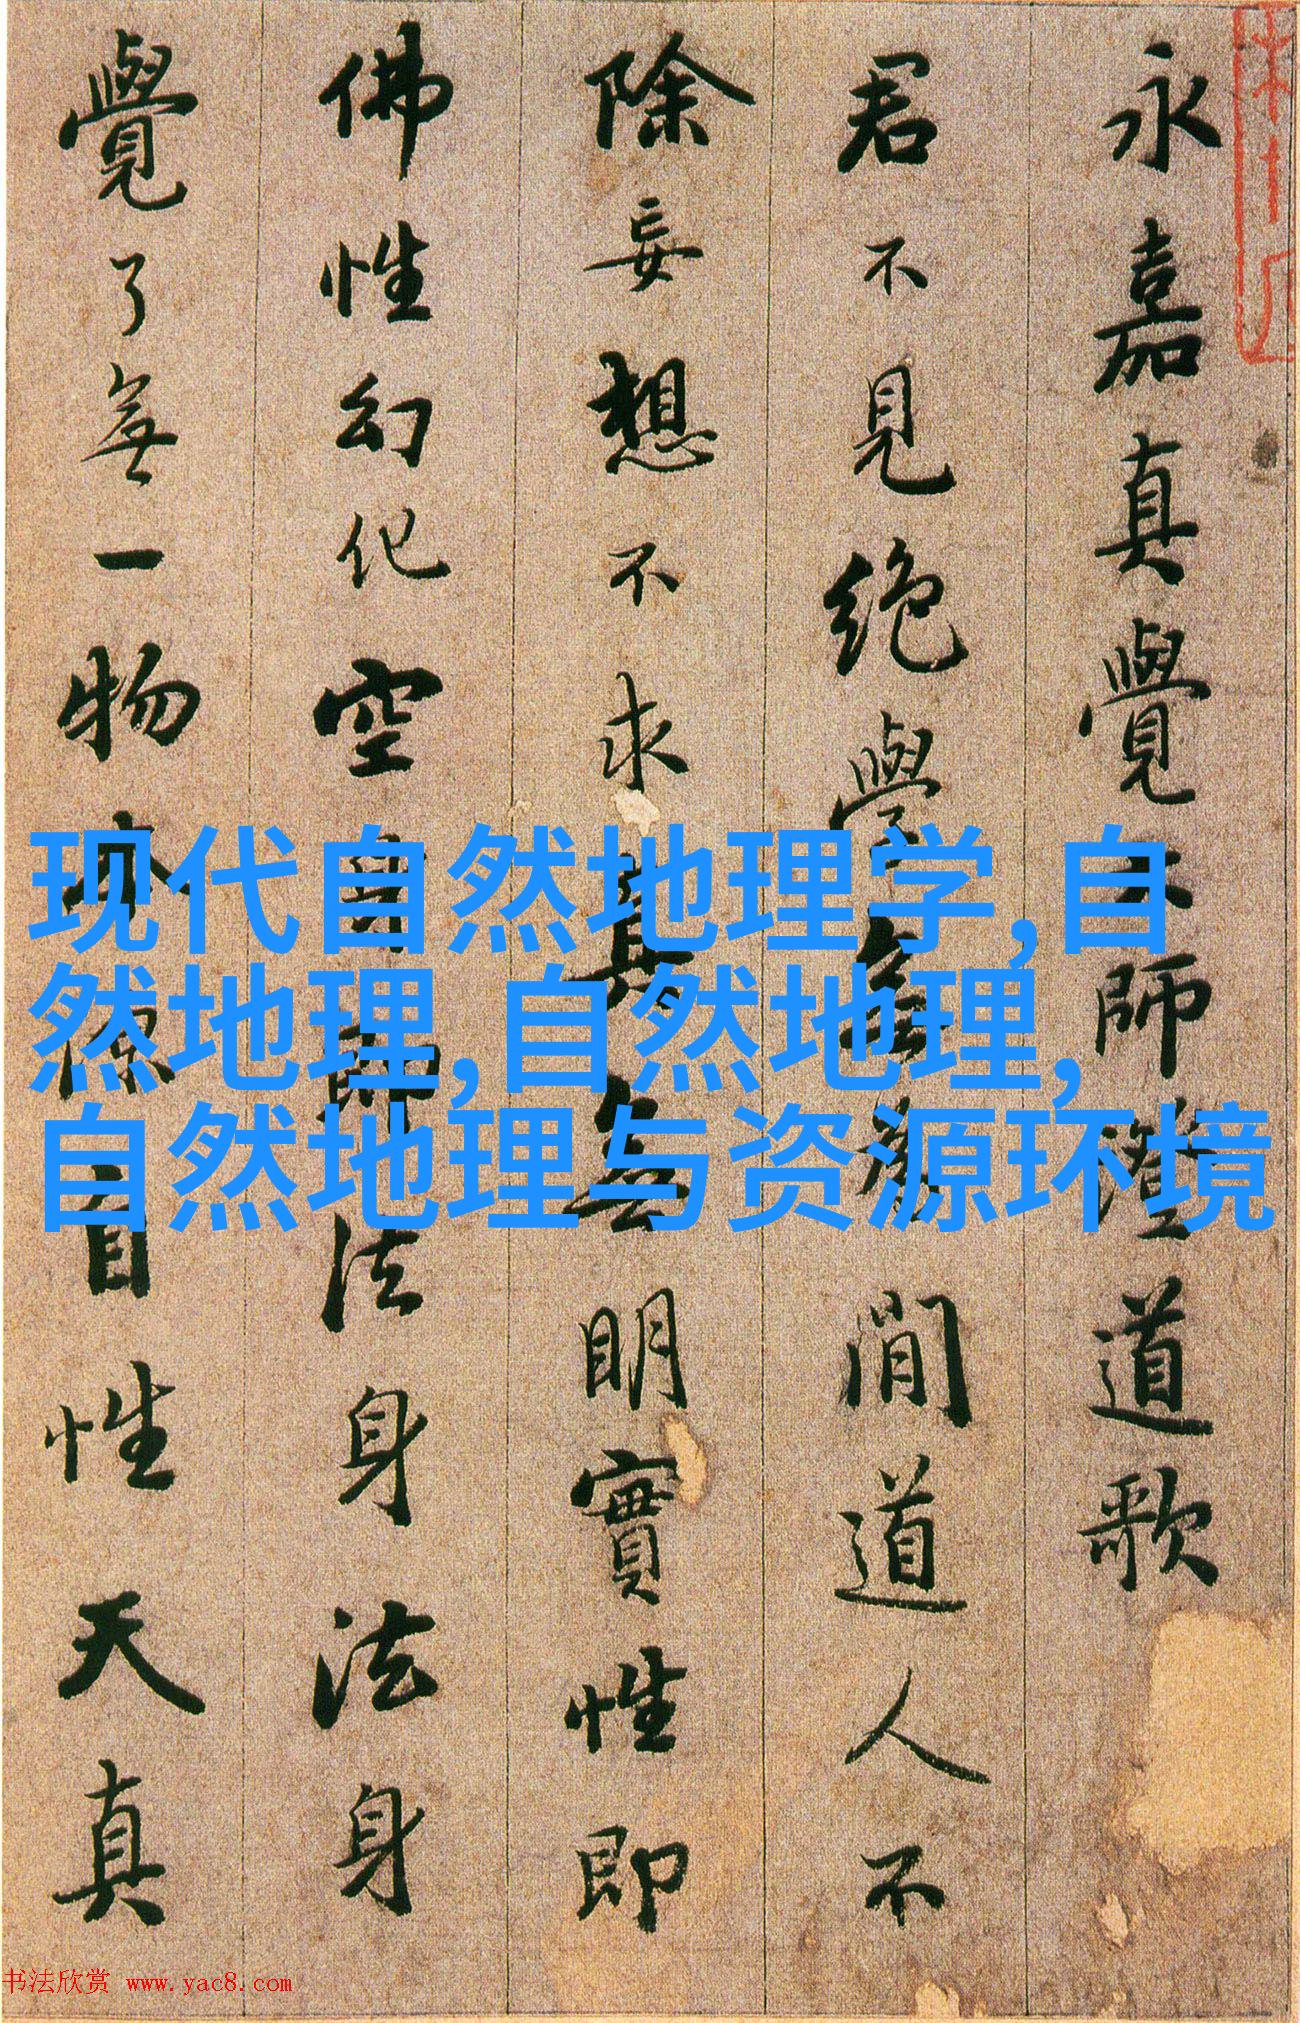 永嘉真覺大師證道歌
君不見絕學無為閒道人不
除妄想不求真無明實性即
佛性幻化空身即法身法身
覺了無一物本源自性天真
现代自然地理学,自
然地理,自然地理,
自然地理与资源环境
书法欣赏 www.yac8.com